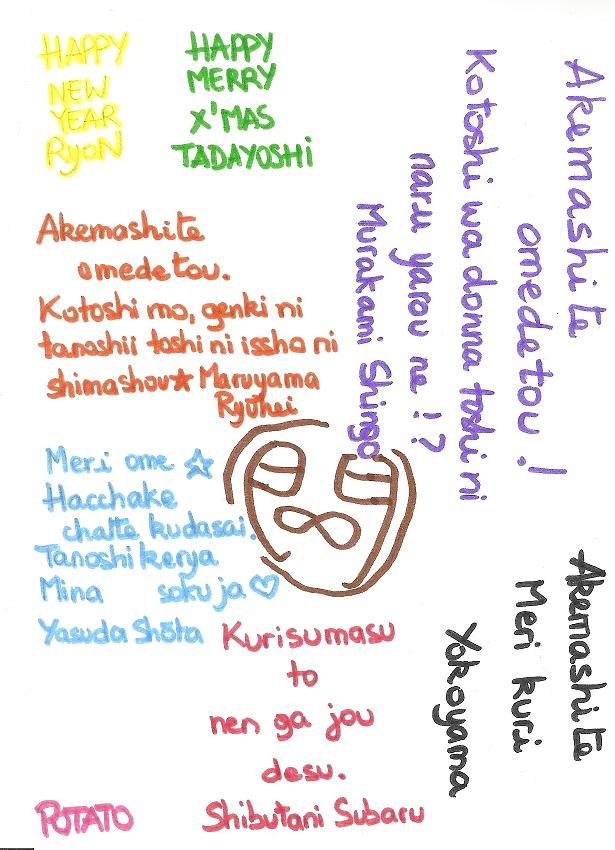 HAPPY
NEW
YEAR
RyoN
HAPPY
MERRY
X'MAS
TADAYOSHi
Akemashite
omedetou.
Kotoshi mo, genki ni
tanoshii toshi ni issho ni
shimashou★ Maruyama
Ryūhei
Meri ome ☆
Hacchake
chatte kudasai.
Tanoshikerya
Mina soku ja♡
Yasuda Shōta
Akemashite
omedetou!
Kotoshi wa donna toshi ni
naru yarou ne!?
Murakami Shingo
Akemashite
Meri kuri
Yokoyama
Kurisumasu
to
nen ga jou
desu.
Shibutani Subaru
POTATO